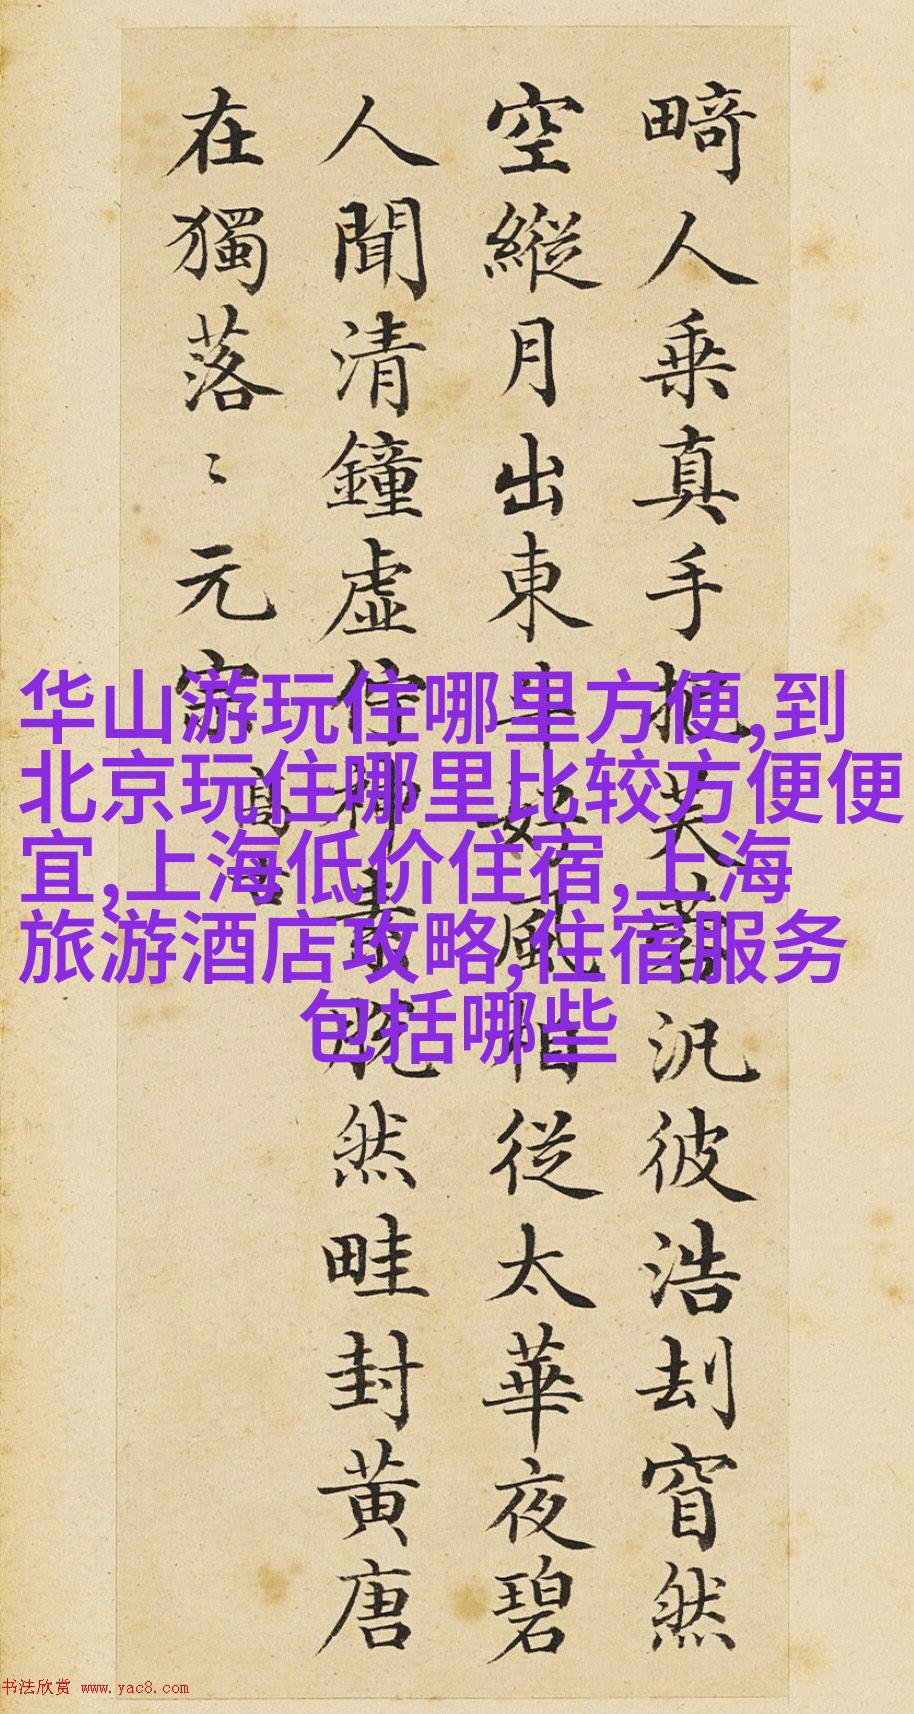 畸人乗真手把芙蓉汎彼浩刦窅然
空縱月出東斗好風相從太華夜碧
人聞清鐘虛佇神素脱然畦封黄唐
在獨落〻元宗
华山游玩住哪里方便,到
北京玩住哪里比较方便便
宜,上海低价住宿,上海
旅游酒店攻略,住宿服务
包括哪些
书法欣赏 www.yac8.com